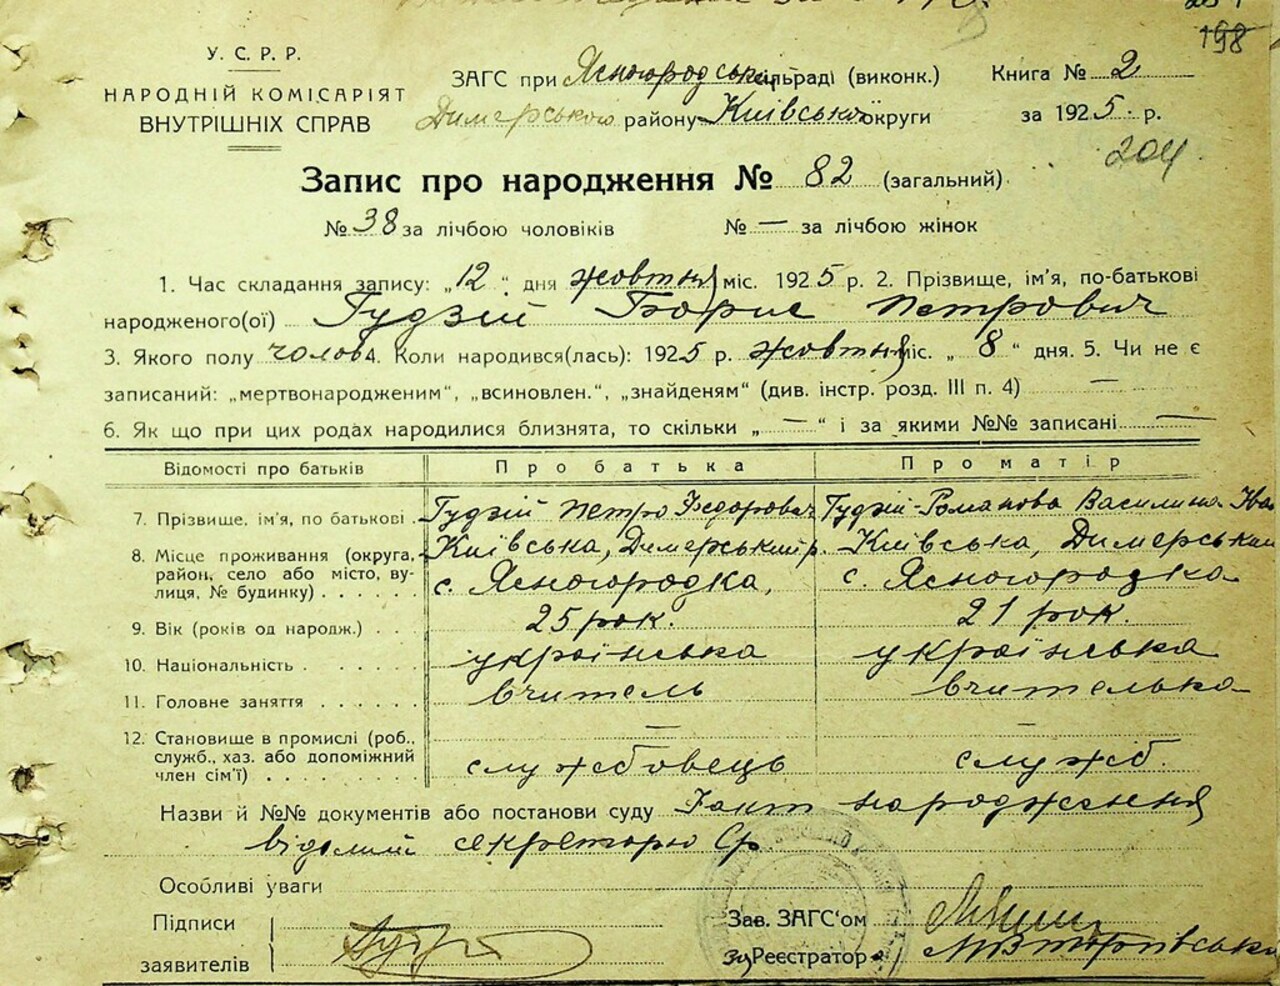 198
У. С. Р. Р.
НАРОДНІЙ КОМІСАРІЯТ
ВНУТРІШНІХ СПРАВ
ЗАГС при Ясногородській сільраді (виконк.)
Димерського району Київської округи
Книга № 2
за 1925 р.
204
Запис про народження № 82 (загальний)
№ 38 за лічбою чоловіків № — за лічбою жінок
1. Час складання запису: „12“ дня жовтня міс. 1925 р. 2. Прізвище, ім'я, по-батькові
народженого(ої) Гудзій Борис Петрович
3. Якого полу чолов. 4. Коли народився(лась): 1925 р. жовтня міс. „8“ дня. 5. Чи не є
записаний: „мертвонародженим“, „всиновлен.“, „знайденям“ (див. інстр. розд. III п. 4) —
6. Як що при цих родах народилися близнята, то скільки „—“ і за якими №№ записані —
Відомості про батьків Про батька Про матір
7. Прізвище, ім'я, по батькові Гудзій Петро Федорович Гудзій-Романова Василина Іван
8. Місце проживання (округа, район, село або місто, вулиця, № будинку) Київська, Димерський р. Київська, Димерський
с. Ясногородка, с. Ясногородка
9. Вік (років од народж.) 25 рок. 21 рок.
10. Національність українська українська
11. Головне заняття вчитель вчителька
12. Становище в промислі (роб., служб., хаз. або допоміжний член сім'ї) — —
службовець служб.
Назви й №№ документів або постанови суду Факт народження
відомий секретарю Ср.
Особливі уваги
Підписи
заявителів
Зав. ЗАГС'ом
За Реєстратор